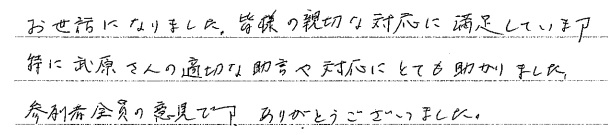 お世話になりました。皆様の親切な対応に満足しています
特に武原さんの適切な助言や対応にとても助かりました。
参列者全員の意見です ありがとうございました。